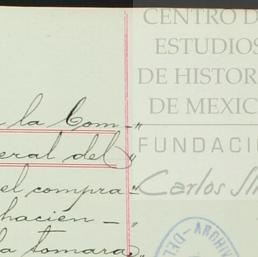 CENTRO D
ESTUDIOS
DE HISTOR
DE MEXIC
FUNDACIÓ
Carlos Sl
a la Com-"
eral del"
el compra-"
hacien-"
la tomara
ARCHIV